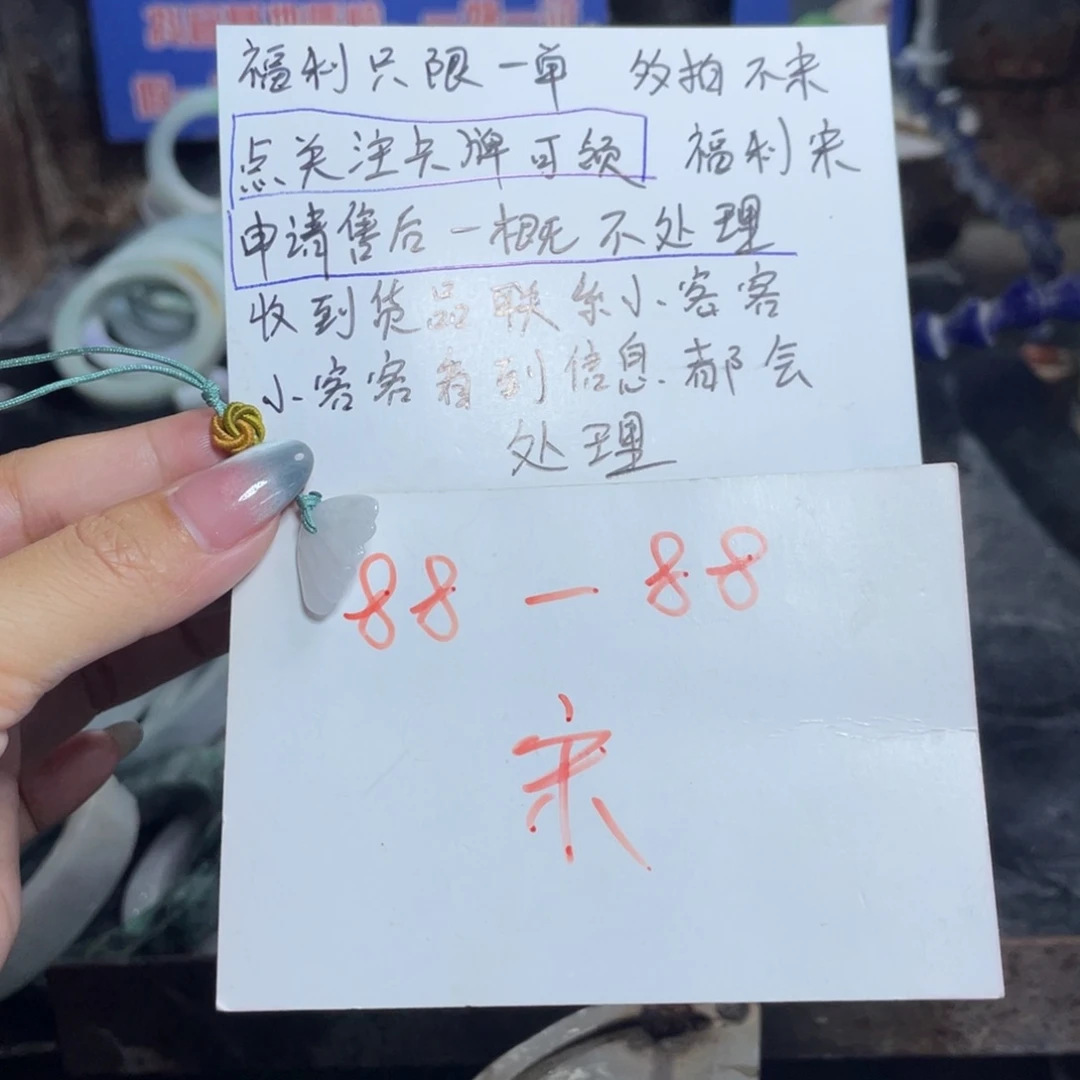 福利只限一单 多拍不来
点关注卡牌可领 福利宋
申请售后一概不处理
收到货品联系小客客
小客客看到信息都会
处理
88 — 88
宋